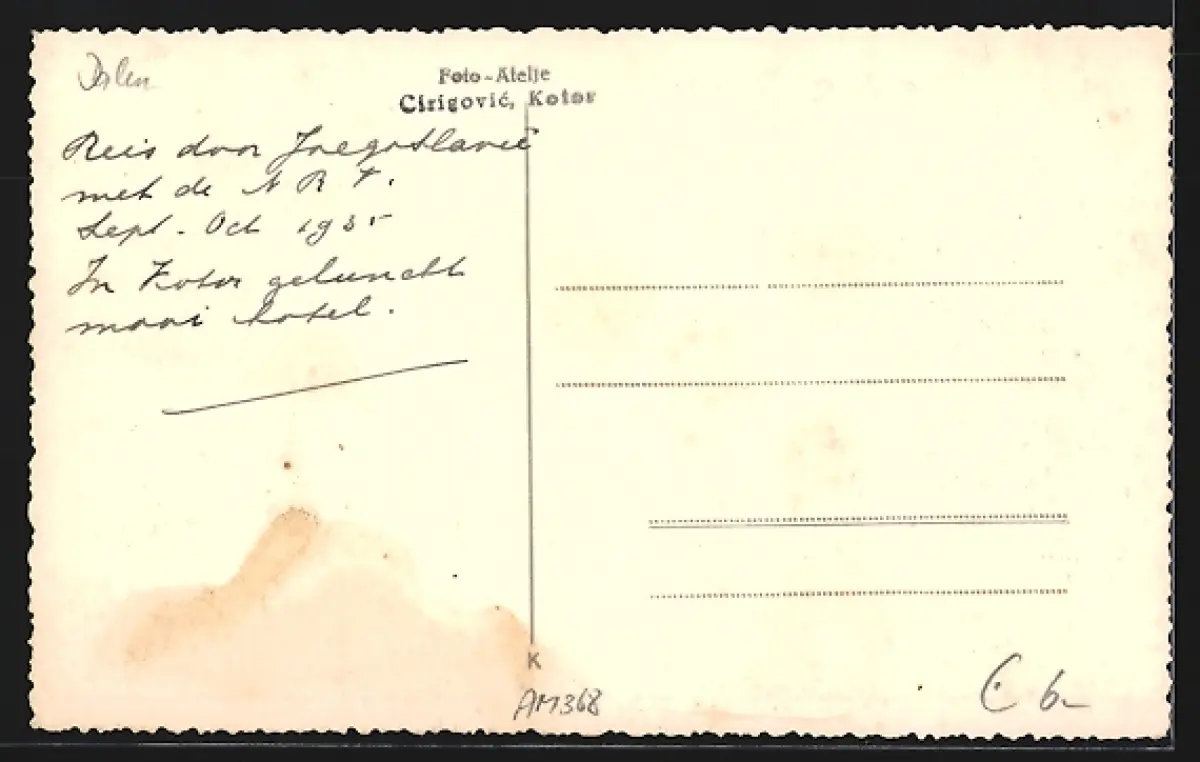 Foto-Atelje
Cirigović, Kotor
Reis door Joegoslavië
met de N R V.
Sept. Oct 1935
In Kotor geluncht
mooi hotel.
K
AM368
€ 6-